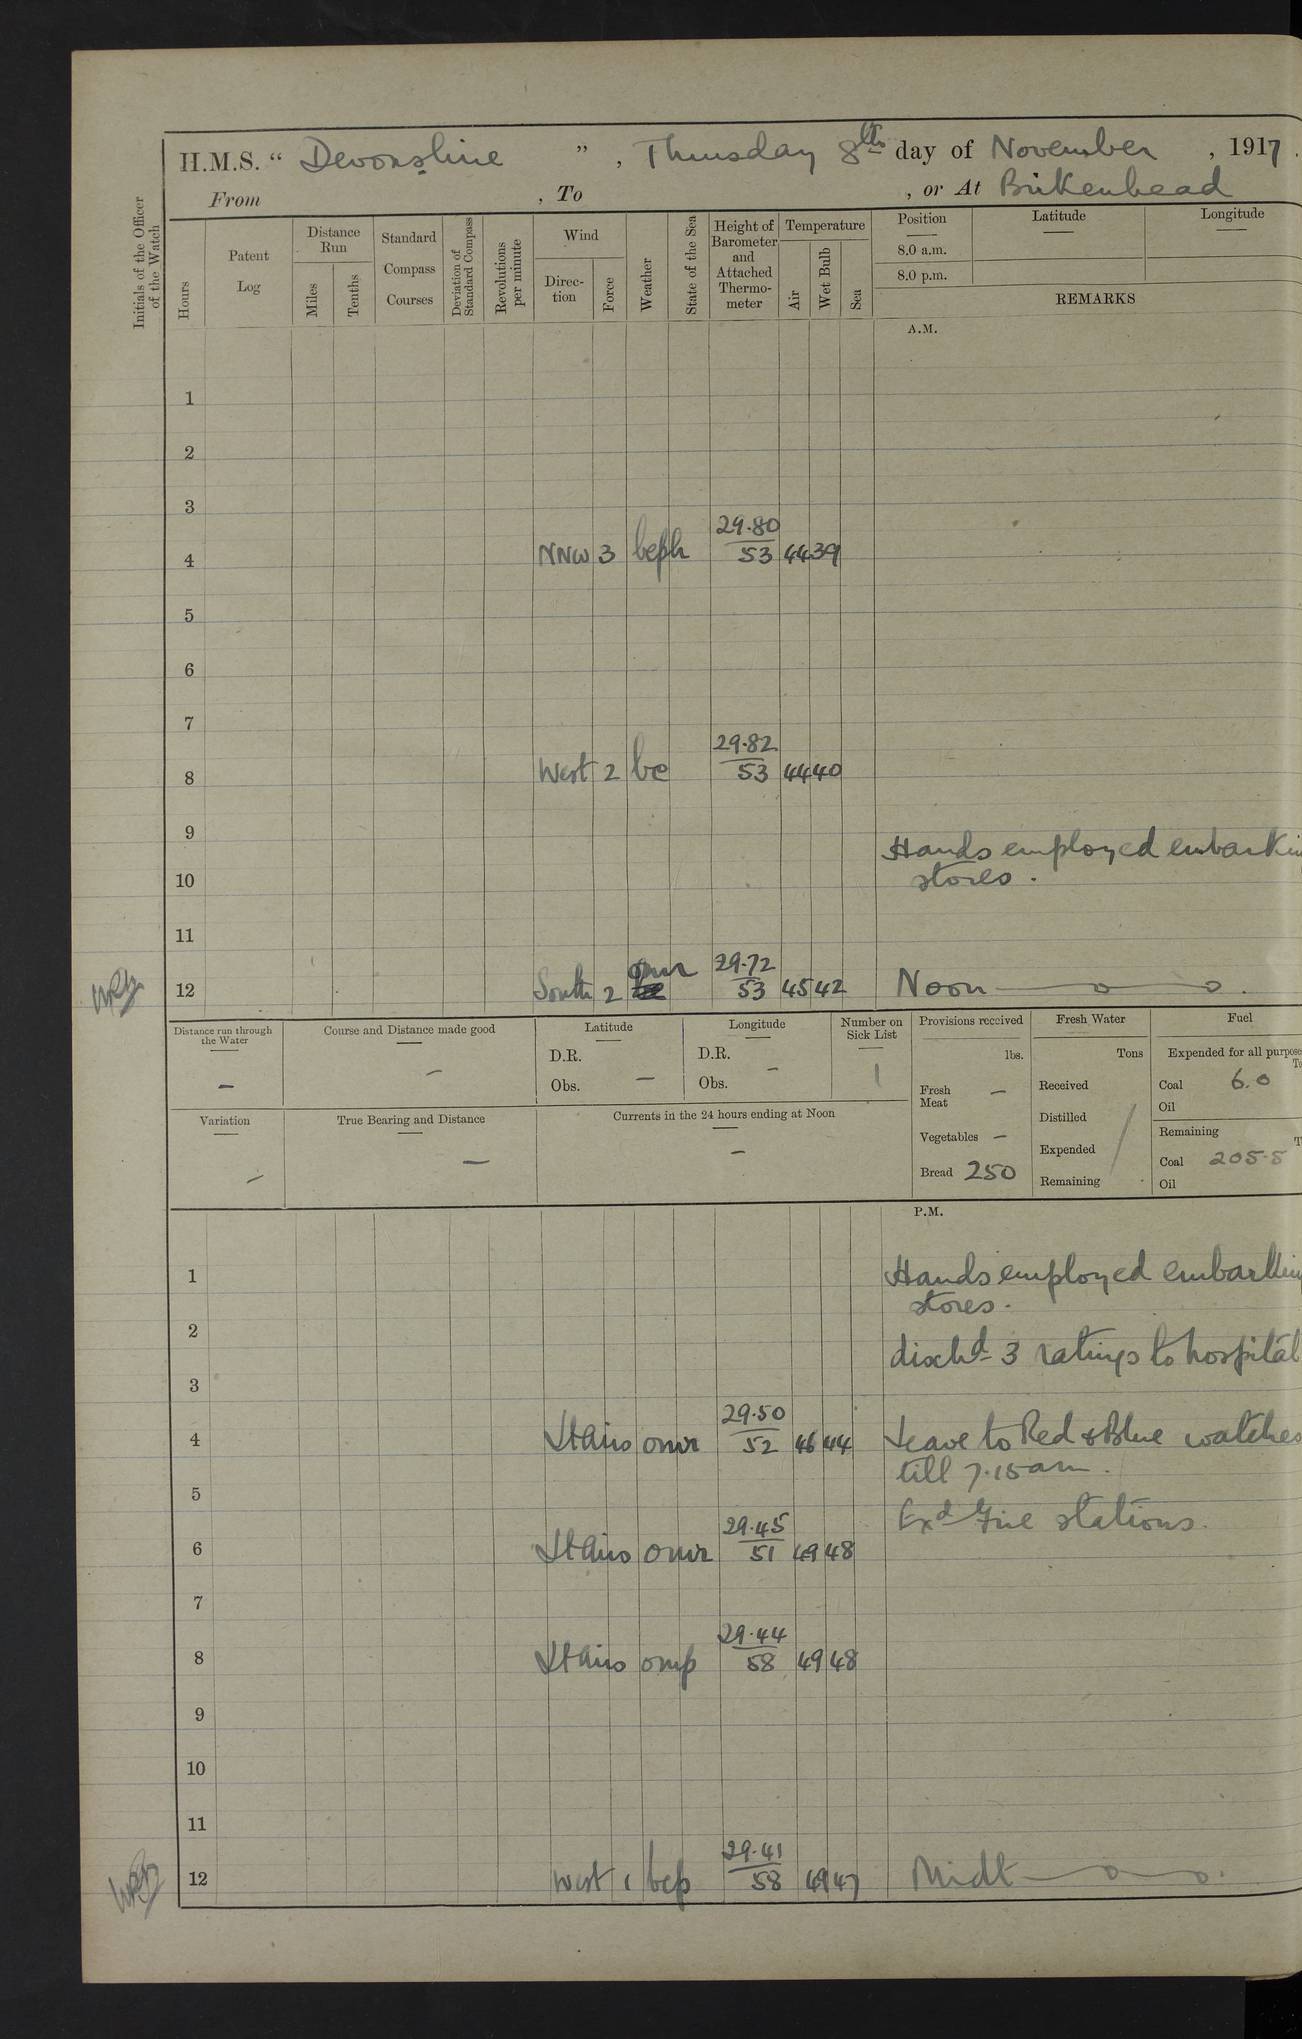 H.M.S. “ Devonshire ” , Thursday 8th day of November , 1917 .
From , To , or At Birkenhead
Initials of the Officer of the Watch
Hours
Patent Log
Distance Run
Miles
Tenths
Standard Compass Courses
Deviation of Standard Compass
Revolutions per minute
Wind
Direc-tion
Force
Weather
State of the Sea
Height of Barometer and Attached Thermo-meter
Temperature
Air
Wet Bulb
Sea
Position
8.0 a.m.
8.0 p.m.
Latitude
Longitude
REMARKS
A.M.
1
2
3
29.80
4 NNW 3 bcph 53 44 39
5
6
7
29.82
8 West 2 bc 53 44 40
9
Hands employed embarkin
10 stores .
11
omr 29.72
12 South 2 53 45 42 Noon
Distance run through the Water
–
Course and Distance made good
–
Latitude
D.R.
Obs. –
Longitude
D.R. –
Obs.
Number on Sick List
1
Provisions received
lbs.
Fresh Meat –
Vegetables –
Bread 250
Fresh Water
Tons
Received
Distilled
Expended
Remaining
Fuel
Expended for all purposes
Coal 6.0
Oil
Remaining
Coal 205.5
Oil
Variation
–
True Bearing and Distance
–
Currents in the 24 hours ending at Noon
–
P.M.
1 Hands employed embarkin
stores .
2
dischd 3 ratings to hospital
3
29.50
4 omr 52 46 44 Leave to Red & Blue watches
till 7.15 am .
5
Exd Fire stations.
29.45
6 omr 51 49 48
7
29.44
8 omp 58 49 48
9
10
11
29.41
12 West 1 bcp 58 49 47 Midt